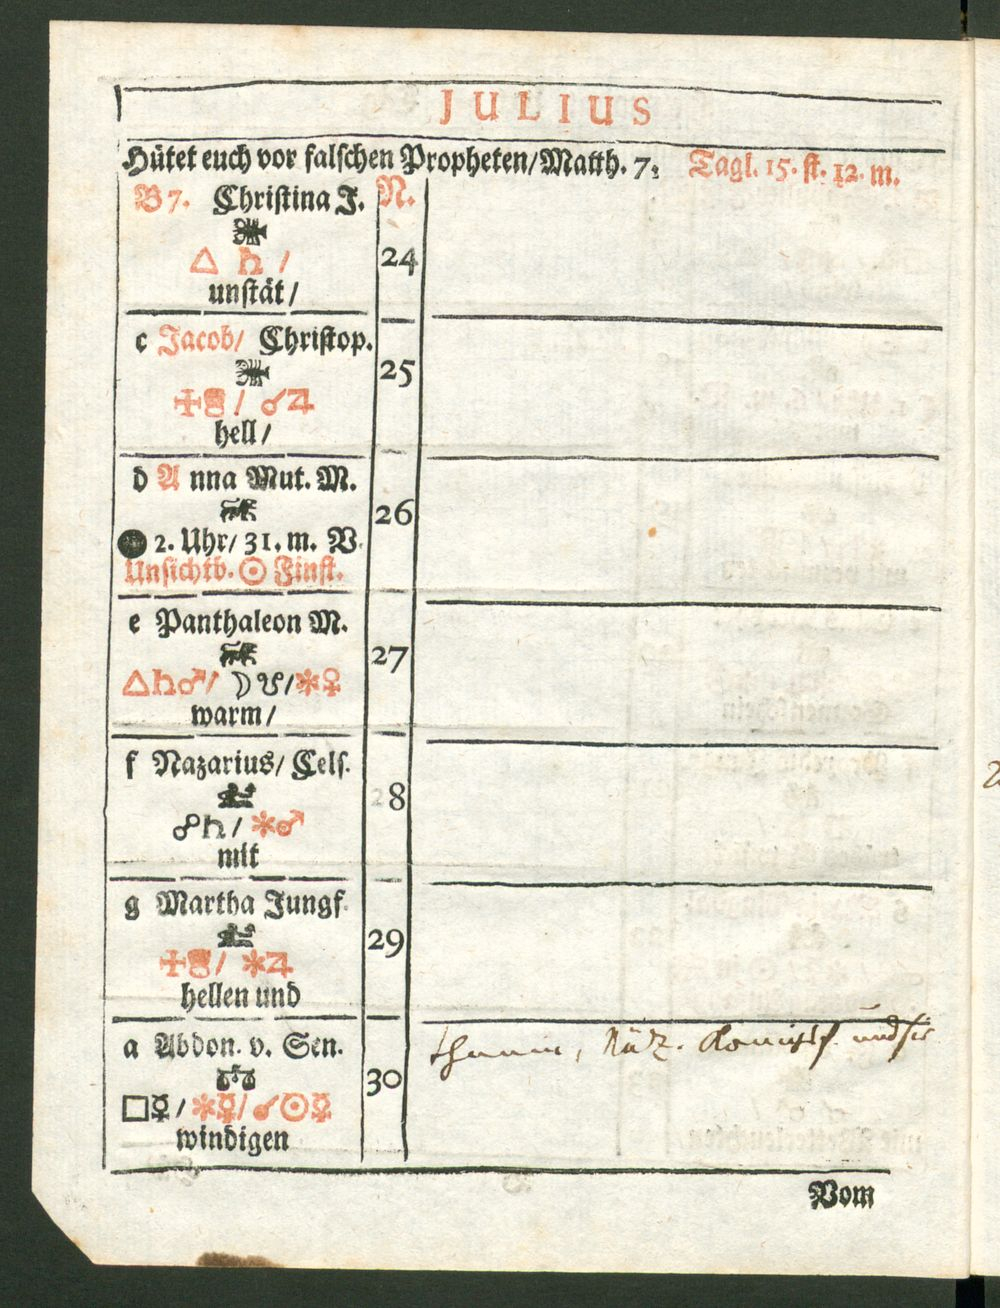 JULIUS
Hütet euch vor falschen Propheten/Matth. 7. Tagl. 15. st. 12. m.
B 7. Christina J. N.
△ ♄ / 24
unstät/
c Jacob/ Christop.
25
/ ☌♃
hell/
d Anna Mut. M.
26
● 2. Uhr/ 31. m. V.
Unsichtb. ☉ Finst.
e Panthaleon M.
27
△♄♂/ ☽ ☋/✶♀
warm/
f Nazarius/ Cels.
28
☍♄/ ✶♂
mit
g Martha Jungf.
29
/ ✶♃
hellen und
a Abdon. v. Sen.
30
□☿/✶☿/☌☉☿
windigen
Vom